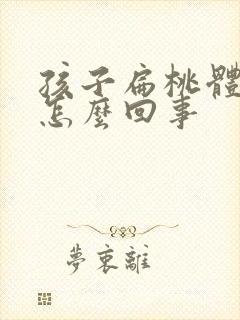 孩子扁桃體
怎麼回事
夢裏離